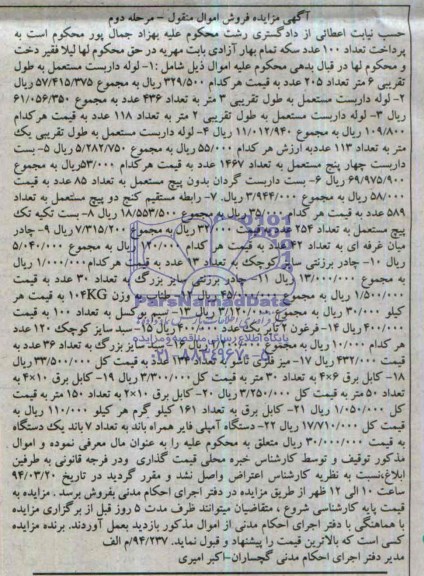 آگهی مزایده فروش اموال منقول - مرحله دوم
حسب نیابت اعطائی از دادگستری رشت محکوم علیه بهزاد جمال پور محکوم است به
پرداخت تعداد ۱۰۰ عدد سکه تمام بهار آزادی بابت مهریه در حق محکوم لها لیلا فقیر دخت
و محکوم لها در قبال بدهی محکوم علیه اموال ذیل شامل :۱- لوله داربست مستعمل به طول
تقریبی ۶ متر تعداد ۲۰۵ عدد به قیمت هر کدام ۳۲۹/۵۰۰ ریال به مجموع ۵۷/۴۱۵/۳۷۵ ریال
۲- لوله داربست مستعمل به طول تقریبی ۳ متر به تعداد ۴۳۶ عدد به مجموع ۶۱/۰۵۶/۳۵۰
ریال ۳- لوله داربست مستعمل به طول تقریبی ۲ متر به تعداد ۱۱۸ عدد به قیمت هرکدام
۱۰۹/۸۰۰ ریال به مجموع ۱۱/۰۱۲/۹۴۰ ریال ۴- لوله داربست مستعمل به طول تقریبی یک
متر به تعداد ۱۱۳ عددبه ارزش هر کدام ۵۵/۰۰۰ ریال به مجموع ۵/۲۸۲/۷۵۰ ریال ۵- بست
داربست چهار پنج مستعمل به تعداد ۱۴۶۷ عدد به قیمت هر کدام ۵۳/۰۰۰ریال به مجموع
۶۹/۹۷۵/۹۰۰ ریال ۶- بست داربست گردان بدون پیچ مستعمل به تعداد ۸۵ عدد به قیمت
۵۸/۰۰۰ ریال به مجموع ۳/۹۴۴/۰۰۰ ریال ۷- رابطه مستقیم کنج دو پیچ مستعمل به تعداد
۵۸۹ عدد به قیمت هر کدام ۳۵/۰۰۰ ریال به مجموع ۱۸/۵۵۳/۵۰۰ ریال ۸- بست تکیه تک
پیچ مستعمل به تعداد ۲۵۴ عدد به قیمت ۳۲/۰۰۰ ریال به مجموع ۷/۳۱۵/۲۰۰ ریال ۹- چادر
میان غرفه ای به تعداد ۴۲ عدد به قیمت هر کدام ۱۲۰/۰۰۰ ریال به مجموع ۵/۰۴۰/۰۰۰
ریال ۱۰- چادر برزنتی سایز کوچک به تعداد ۱۳ عدد به قیمت هرکدام ۱/۰۰۰/۰۰۰ ریال
به مجموع ۱۳/۰۰۰/۰۰۰ ریال ۱۱- چادر برزنتی سایز بزرگ به تعداد ۳۰ عدد به قیمت
۱/۵۰۰/۰۰۰ ریال به مجموع ۴۵/۰۰۰/۰۰۰ ریال ۱۲- طناب به وزن ۱۰۴KG به قیمت هر
کیلو ۳۰/۰۰۰ ریال به مجموع ۳/۱۲۰/۰۰۰ ریال ۱۳- سیم بوکسل به تعداد ۱۰۰ به قیمت
۴۰۰/۰۰۰ ریال ۱۴- فرغون ۲ تایر یک عدد ۴۰۰/۰۰۰ ریال ۱۵- سبد سایز کوچک ۱۲۰ عدد
هر کدام ۱۰/۰۰۰ ریال به مجموع ۱/۲۰۰/۰۰۰ ریال ۱۶- سبد سایز بزرگ به تعداد ۳۶ عدد به
قیمت ۴۳۲/۰۰۰ ریال ۱۷- میز فلزی تاشو به تعداد ۱۳۴ عدد به قیمت کل ۳۳/۵۰۰/۰۰۰ ریال
۱۸- کابل برق ۴×۶ به تعداد ۳۰ متر به قیمت کل ۳/۳۰۰/۰۰۰ ریال ۱۹- کابل برق ۱۰×۴ به
تعداد ۵۰ متر به قیمت کل ۳/۲۵۰/۰۰۰ ریال ۲۰- کابل برق ۱۰×۲ به تعداد ۱۵۰ متر به قیمت
کل ۱/۰۵۰/۰۰۰ ریال ۲۱- کابل برق به تعداد ۱۶۱ کیلو گرم هر کیلو ۱۱۰/۰۰۰ ریال به
قیمت کل ۱۷/۷۱۰/۰۰۰ ریال ۲۲- دستگاه آمپلی فایر همراه باند به تعداد ۷ باند یک دستگاه
به قیمت ۳۰/۰۰۰/۰۰۰ ریال متعلق به محکوم علیه را به عنوان مال معرفی نموده و اموال
مذکور توقیف و توسط کارشناس خبره محلی قیمت گذاری ودر فرجه قانونی به طرفین
ابلاغ،نسبت به نظریه کارشناس اعتراض واصل نشد و مقرر گردید در تاریخ ۹۴/۰۳/۲۰
ساعت ۱۰ الی ۱۲ ظهر از طریق مزایده در دفتر اجرای احکام مدنی بفروش برسد . مزایده به
قیمت پایه کارشناسی شروع ، متقاضیان میتوانند ظرف مدت ۵ روز قبل از برگزاری مزایده
با هماهنگی با دفتر اجرای احکام مدنی از اموال مذکور بازدید بعمل آورند. برنده مزایده
کسی است که بالاترین قیمت را پیشنهاد و قبول نماید. ۹۴/۲۳۷/م الف
مدیر دفتر اجرای احکام مدنی گچساران-اکبر امیری
ParsNamadData
پایگاه اطلاع رسانی مناقصه و مزایده
۰۲۱-۸۸۳۴۹۶۷۰-۵